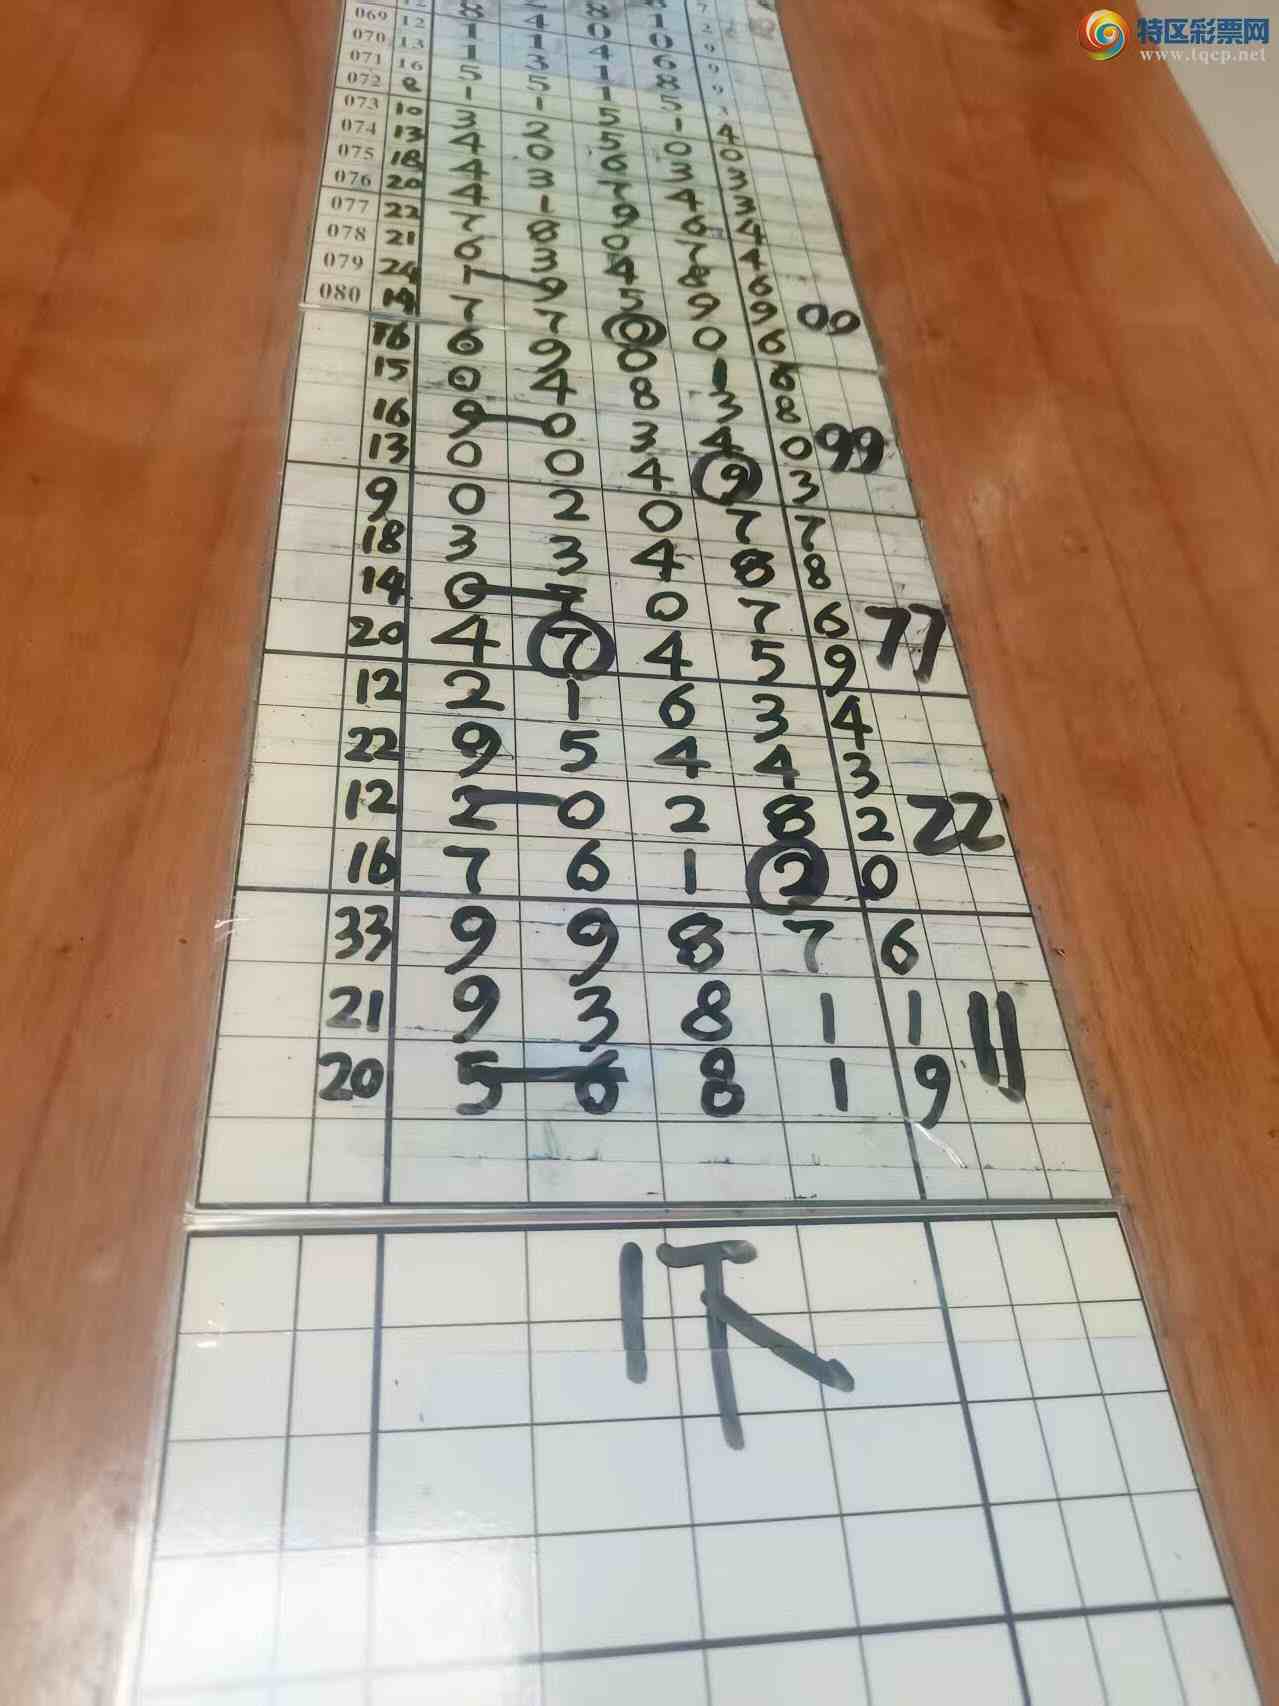 特区彩票网
www.tqcp.net
069 12 1 4 0 1 2
070 13 1 1 4 0 9
071 16 1 3 1 6 9
072 8 5 5 1 8 9
073 10 1 1 5 5 3
074 13 3 2 5 1 4
075 18 4 0 6 0 0
076 20 4 3 7 3 3
077 22 4 1 9 4 3
078 21 7 8 0 6 4
079 24 6 3 4 7 4
080 19 1 9 5 8 6
16 7 7 0 9 9 00
15 6 9 0 0 6
16 0 4 8 1 6
13 9 0 3 3 8
9 0 2 0 7 7
18 3 3 4 8 8
14 0 7 0 7 6 77
20 4 7 4 5 9
12 2 1 6 3 4
22 9 5 4 4 3
12 2 0 2 8 2 22
16 7 6 1 2 0
33 9 9 8 7 6
21 9 3 8 1 1 11
20 5 6 8 1 9
1下